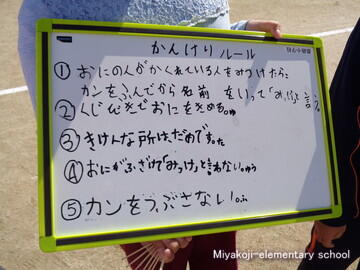 かんけり ルール
①おにの人がかくれている人をみつけたら、
カンをふんでから名前をいって「みっけ」と言う。
②くじびきでおにをきめる。
③きけんな所は、だめです。
④おにがふざけて「みっけ」と言わない。
⑤カンをつぶさない。
Miyakoji elementary school